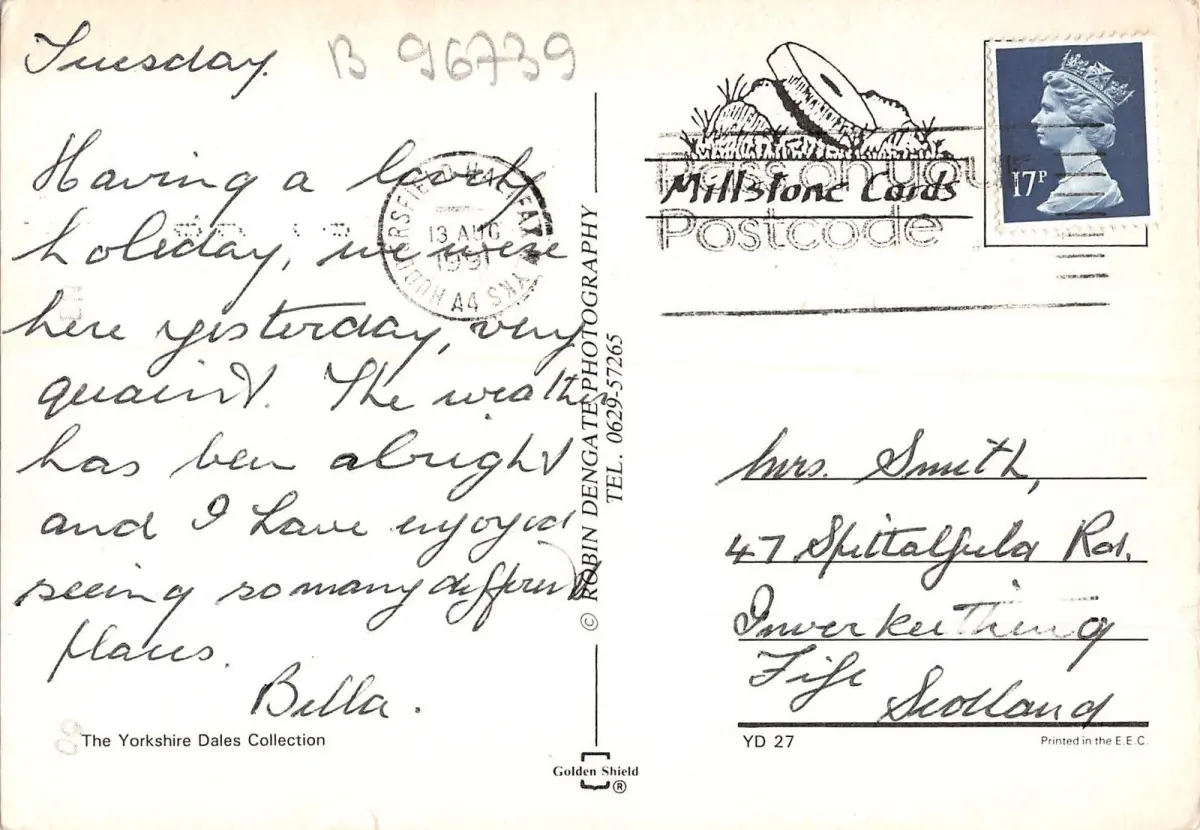 Tuesday. B 96739
Having a lovely
holiday, we were
here yesterday, very
quaint. The weather
has been alright
and I have enjoyed
seeing so many different
places.
Bella.
The Yorkshire Dales Collection
© ROBIN DENGATE PHOTOGRAPHY
TEL. 0629-57265
Golden Shield
®
HUDDERSFIELD HALIFAX
13 AUG
1991
YKS A4
Millstone Cards
pass on your
Postcode
17P
Mrs. Smith,
47 Spittalfield Rd.
Inverkeithing
Fife
Scotland
YD 27
Printed in the E.E.C.